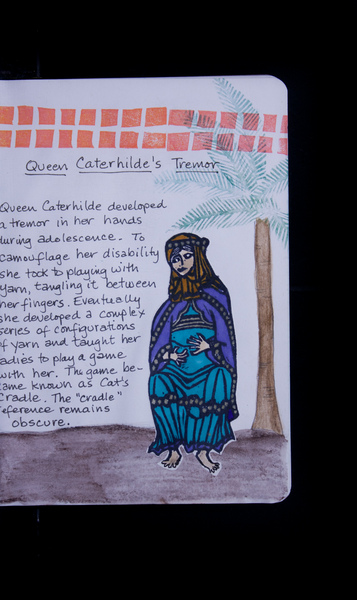 Queen Caterhilde's Tremor
Queen Caterhilde developed
a tremor in her hands
during adolescence. To
camouflage her disability
she took to playing with
yarn, tangling it between
her fingers. Eventually
she developed a complex
series of configurations
of yarn and taught her
ladies to play a game
with her. The game be-
came known as Cat's
Cradle. The "cradle"
reference remains
obscure.